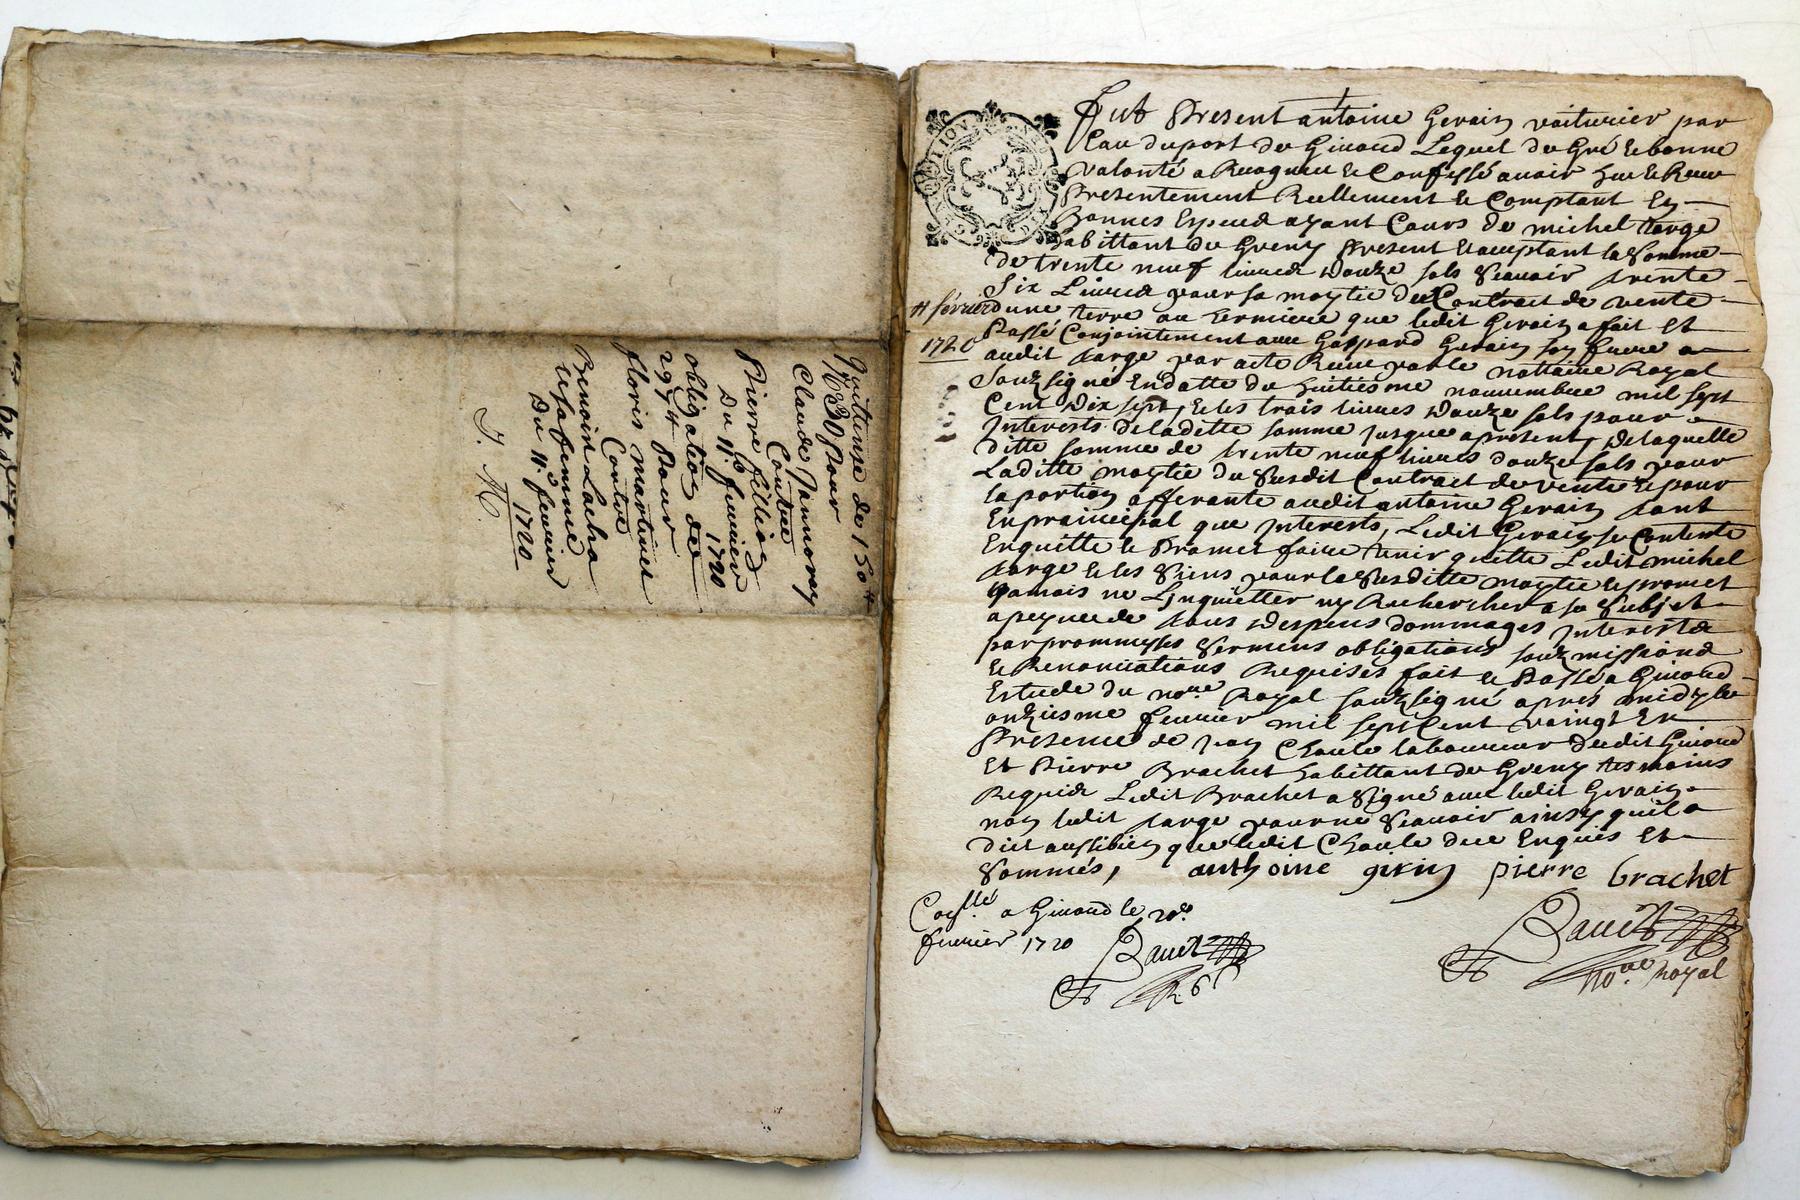 Quittense de 150 #
Pour
Claude Jannoray
Contre
Pierre fillios
Du 11.e feuvrier
1720
obligation de
297# Pour
floris martinet
Contre
Benoist Lacha
et sa femme
Du 11.e feuvrier
1720
J. M.
Fut Present antoine Gerain voiturier par
Leau du port de Giuord Lequel de Gré et bonne
valonté a Recogneu et Confessé auoir Heu et Receu
Presentement Reellement et Comptant En
Bonnes Especes ayant Cours de michel targe
habittant de Greny Present Et aceptant la Somme
de trente neuf liures douze sols Scauoir trente
Six Liures pour sa moytié du Contrait de vente
dune terre ou vermiere que ledit Gerain a fait Et
11 féurier
1720
Passé Conjointement auec Gaspard Gerain son frere a
audit targe par acte Receu par le nottaire Royal
Souzsigné En datte du huitiesme nouuembre mil sept
Cent Dix sept, Et les trois liures Douze sols pour
Interests de ladette somme Jusque a present, de laquelle
ditte somme de trente neuf liures douze sols pour
Laditte moytié du Susdit Contrait de vente Et pour
la portion afferante audit antoine Gerain tant
En prainicipal que Interests, Ledit Gerain se Contente
Enquitte et Promet faire tenir quitte Ledit michel
targe Et les Siens pour la Susditte moytié Et promet
Jamais ne Linquietter ny Rechercher a ce Subjet
a peyne de tous Despens dommages Interests
par prommesses Sermens obligations souzmissions
Et Renonciations Requises fait Et Passé a Giuord
Estude du no.re Royal souzsigné aprés midy le
onziesme feurier mil sept Cent vaingt En
Presence de Jean Chaule laboureur dudit Giuord
Et Pierre Brachet habittant de Greny tesmoins
Requis Ledit Brachet a Signé auec ledit Gerain
non ledit targe pour ne Scauoir ainsy quil a
Dict aussibien que ledit Chaule de ce Enquis Et
Sommés, anthoine girin pierre brachet
a Giuord le 20.e
feurier 1720
R 6 s
no.re royal